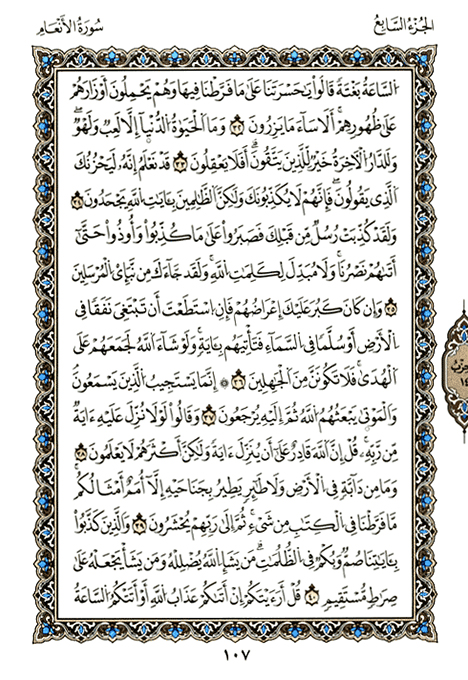 الجُزْءُ السَّابِعُ
سُورَةُ الأَنْعَامِ
السَّاعَةُ بَغْتَةً قَالُواْ يَٰحَسْرَتَنَا عَلَىٰ مَا فَرَّطْنَا فِيهَا وَهُمْ يَحْمِلُونَ أَوْزَارَهُمْ
عَلَىٰ ظُهُورِهِمْ أَلَا سَآءَ مَا يَزِرُونَ ٣٢ وَمَا الْحَيَوٰةُ الدُّنْيَآ إِلَّا لَعِبٌ وَلَهْوٌ
وَلَلدَّارُ الْأٓخِرَةُ خَيْرٌ لِّلَّذِينَ يَتَّقُونَ أَفَلَا يَعْقِلُونَ ٣٣ قَدْ نَعْلَمُ إِنَّهُۥ لَيَحْزُنُكَ
الَّذِى يَقُولُونَ فَإِنَّهُمْ لَا يُكَذِّبُونَكَ وَلَٰكِنَّ الظَّٰلِمِينَ بِـَٔايَٰتِ اللَّهِ يَجْحَدُونَ ٣٤
وَلَقَدْ كُذِّبَتْ رُسُلٌ مِّن قَبْلِكَ فَصَبَرُواْ عَلَىٰ مَا كُذِّبُواْ وَأُوذُواْ حَتَّىٰٓ
أَتَىٰهُمْ نَصْرُنَا وَلَا مُبَدِّلَ لِكَلِمَٰتِ اللَّهِ وَلَقَدْ جَآءَكَ مِن نَّبَإِىْ الْمُرْسَلِينَ
٣٥ وَإِن كَانَ كَبُرَ عَلَيْكَ إِعْرَاضُهُمْ فَإِنِ اسْتَطَعْتَ أَن تَبْتَغِىَ نَفَقًا فِى
الْأَرْضِ أَوْ سُلَّمًا فِى السَّمَآءِ فَتَأْتِيَهُم بِـَٔايَةٍ وَلَوْ شَآءَ اللَّهُ لَجَمَعَهُمْ عَلَى
الْهُدَىٰ فَلَا تَكُونَنَّ مِنَ الْجَٰهِلِينَ ٣٦ ۞ إِنَّمَا يَسْتَجِيبُ الَّذِينَ يَسْمَعُونَ
وَالْمَوْتَىٰ يَبْعَثُهُمُ اللَّهُ ثُمَّ إِلَيْهِ يُرْجَعُونَ ٣٧ وَقَالُواْ لَوْلَا نُزِّلَ عَلَيْهِ ءَايَةٌ
مِّن رَّبِّهِۦ قُلْ إِنَّ اللَّهَ قَادِرٌ عَلَىٰٓ أَن يُنزِلَ ءَايَةً وَلَٰكِنَّ أَكْثَرَهُمْ لَا يَعْلَمُونَ ٣٨
وَمَا مِن دَآبَّةٍ فِى الْأَرْضِ وَلَا طَٰٓئِرٍ يَطِيرُ بِجَنَاحَيْهِ إِلَّآ أُمَمٌ أَمْثَالُكُم
مَّا فَرَّطْنَا فِى الْكِتَٰبِ مِن شَىْءٍ ثُمَّ إِلَىٰ رَبِّهِمْ يُحْشَرُونَ ٣٩ وَالَّذِينَ كَذَّبُواْ
بِـَٔايَٰتِنَا صُمٌّ وَبُكْمٌ فِى الظُّلُمَٰتِ مَن يَشَإِ اللَّهُ يُضْلِلْهُ وَمَن يَشَأْ يَجْعَلْهُ عَلَىٰ
صِرَٰطٍ مُّسْتَقِيمٍ ٤٠ قُلْ أَرَءَيْتَكُمْ إِنْ أَتَىٰكُمْ عَذَابُ اللَّهِ أَوْ أَتَتْكُمُ السَّاعَةُ
١٠٧